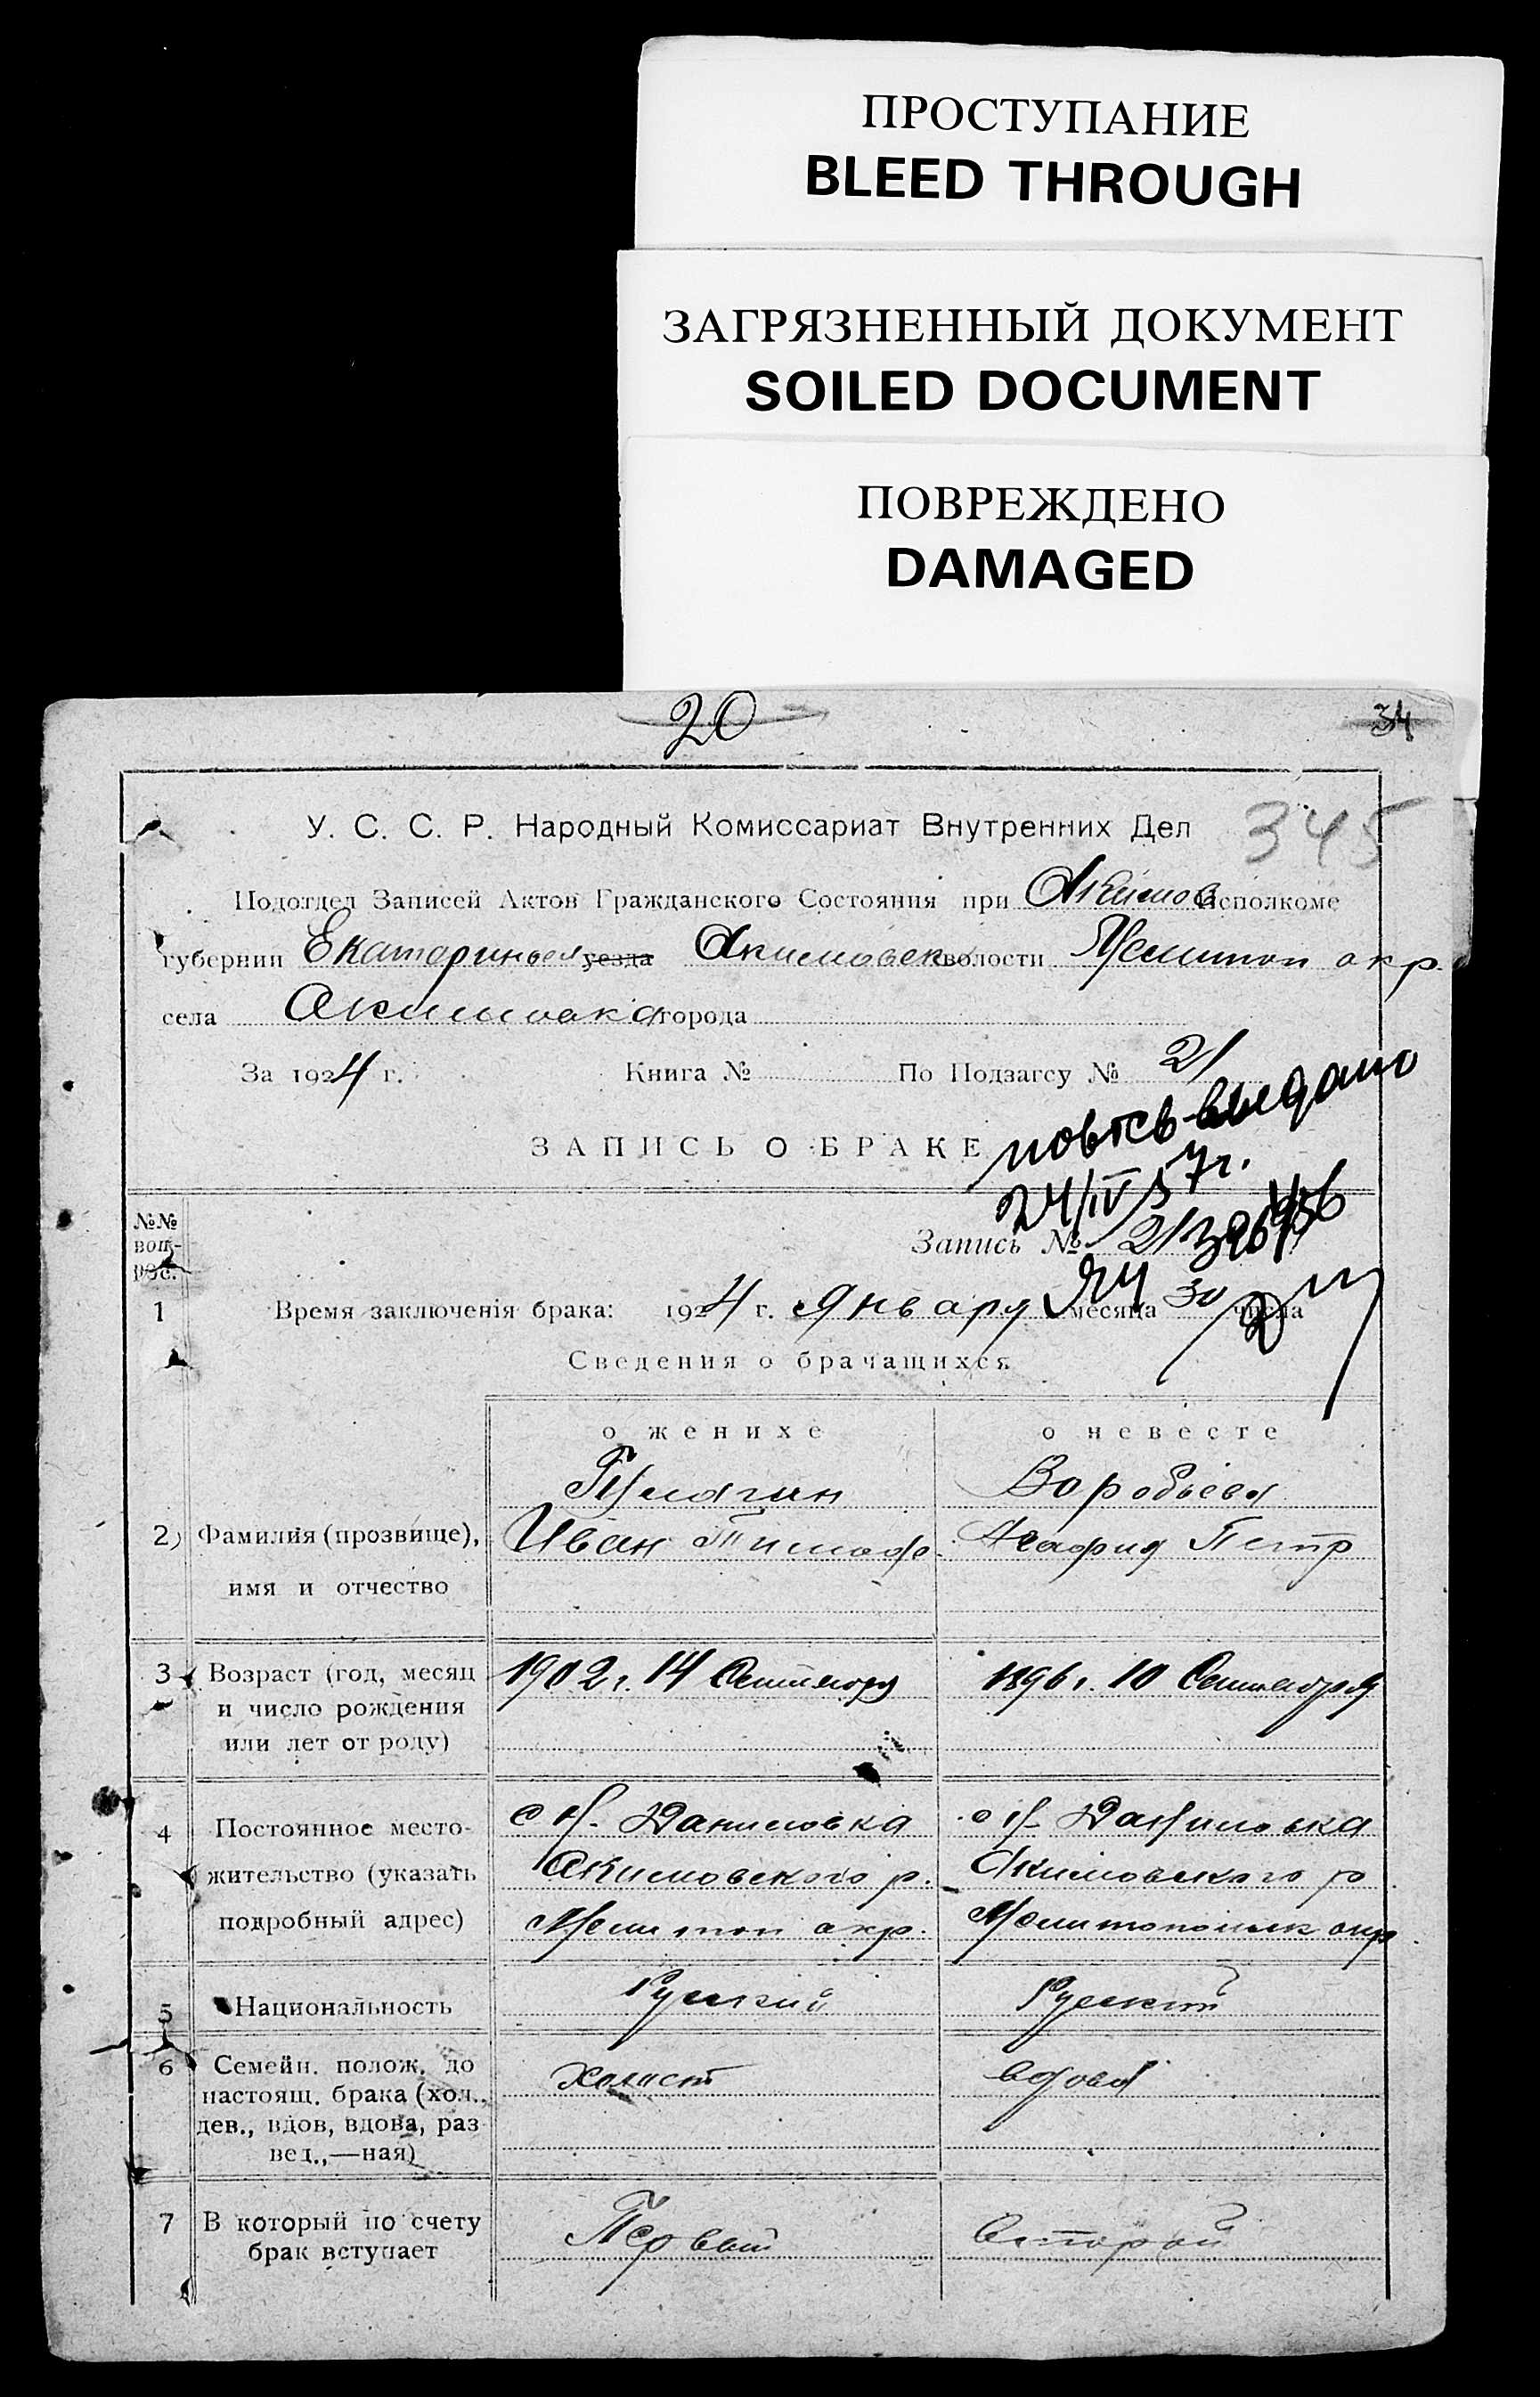 ПРОСТУПАНИЕ
BLEED THROUGH
ЗАГРЯЗНЕННЫЙ ДОКУМЕНТ
SOILED DOCUMENT
ПОВРЕЖДЕНО
DAMAGED
20
34
У. С. С. Р. Народный Комиссариат Внутренних Дел
345
Подотдел Записей Актов Гражданского Состояния при Акимов Исполкоме
губернии Екатериносл уезда Акимовск волости Мелитоп окр.
села Акимовка города
За 1924 г. Книга № По Подзагсу № 21
повтсв выдано
ЗАПИСЬ О БРАКЕ
24/IV 57г.
№№ воп-рос.
Запись № 21
1 Время заключенія брака: 1924 г. Января месяца 30 числа
Сведения о брачащихся
о женихе о невесте
Воробьева
2) Фамилия (прозвище), Иван Тимоф. Агафия Петр
имя и отчество
3 Возраст (год, месяц 1902 г. 14 Сентября 1896 г. 10 Сентября
и число рождения
или лет от роду)
4 Постоянное место- с Н. Даниловка с Н. Даниловка
жительство (указать Акимовского р. Акимовского р
подробный адрес) Мелитоп окр. Мелитопольск окр
5 Национальность Руский Руский
6 Семейн. полож. до Холост вдова
настоящ. брака (хол.,
дев., вдов, вдова, раз
вед.,—ная)
7 В который по счету Первый Второй
брак вступает